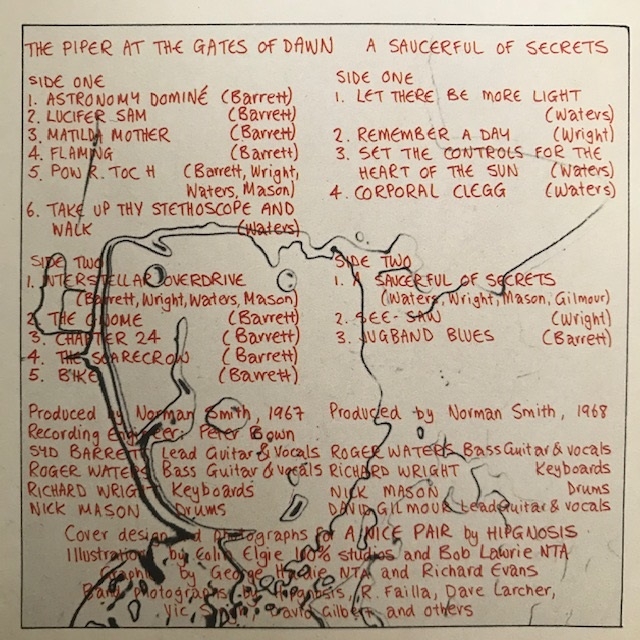 THE PIPER AT THE GATES OF DAWN
SIDE ONE
1. ASTRONOMY DOMINÉ (Barrett)
2. LUCIFER SAM (Barrett)
3. MATILDA MOTHER (Barrett)
4. FLAMING (Barrett)
5. POW R. TOC H (Barrett, Wright,
Waters, Mason)
6. TAKE UP THY STETHOSCOPE AND
WALK (Waters)
SIDE TWO
1. INTERSTELLAR OVERDRIVE
(Barrett, Wright, Waters, Mason)
2. THE GNOME (Barrett)
3. CHAPTER 24 (Barrett)
4. THE SCARECROW (Barrett)
5. BIKE (Barrett)
Produced by Norman Smith, 1967
Recording Engineer: Peter Bown
SYD BARRETT Lead Guitar & vocals
ROGER WATERS Bass Guitar & vocals
RICHARD WRIGHT Keyboards
NICK MASON Drums
A SAUCERFUL OF SECRETS
SIDE ONE
1. LET THERE BE MORE LIGHT
(Waters)
2. REMEMBER A DAY (Wright)
3. SET THE CONTROLS FOR THE
HEART OF THE SUN (Waters)
4. CORPORAL CLEGG (Waters)
SIDE TWO
1. A SAUCERFUL OF SECRETS
(Waters, Wright, Mason, Gilmour)
2. SEE-SAW (Wright)
3. JUGBAND BLUES (Barrett)
Produced by Norman Smith, 1968
ROGER WATERS Bass Guitar & vocals
RICHARD WRIGHT Keyboards
NICK MASON Drums
DAVID GILMOUR Lead Guitar & vocals
Cover design and photographs for A NICE PAIR by HIPGNOSIS
Illustration by Colin Elgie 100% studios and Bob Lawrie NTA
Graphics by George Hardie NTA and Richard Evans
Band photographs by Hipgnosis, R. Failla, Dave Larcher,
Vic Singh, David Gilbert and others